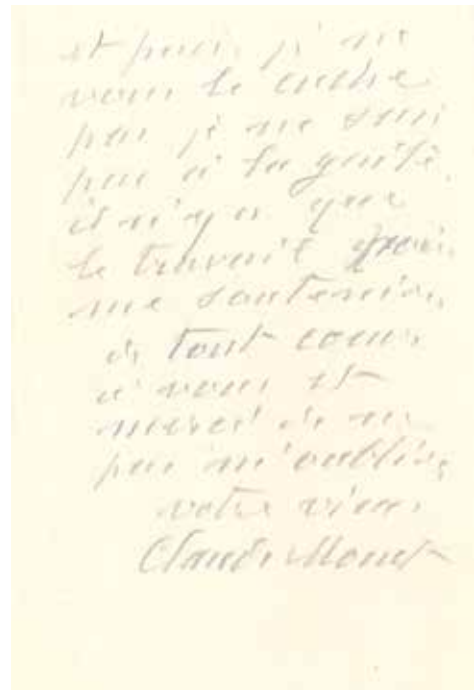 et puis, je ne
vous le cache
pas je ne suis
pas à la gaîté.
il n'y a que
le travail pour
me soutenir,
de tout coeur
à vous et
merci de ne
pas m'oublier
votre vieux
Claude Monet